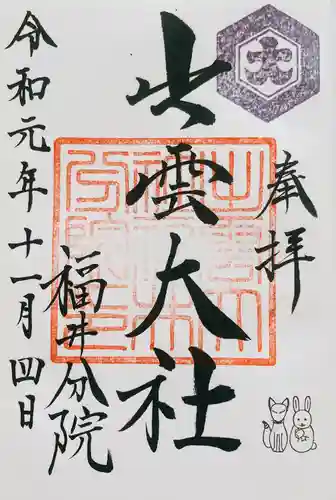 奉拝
出雲大社
福井分院
令和元年十一月四日